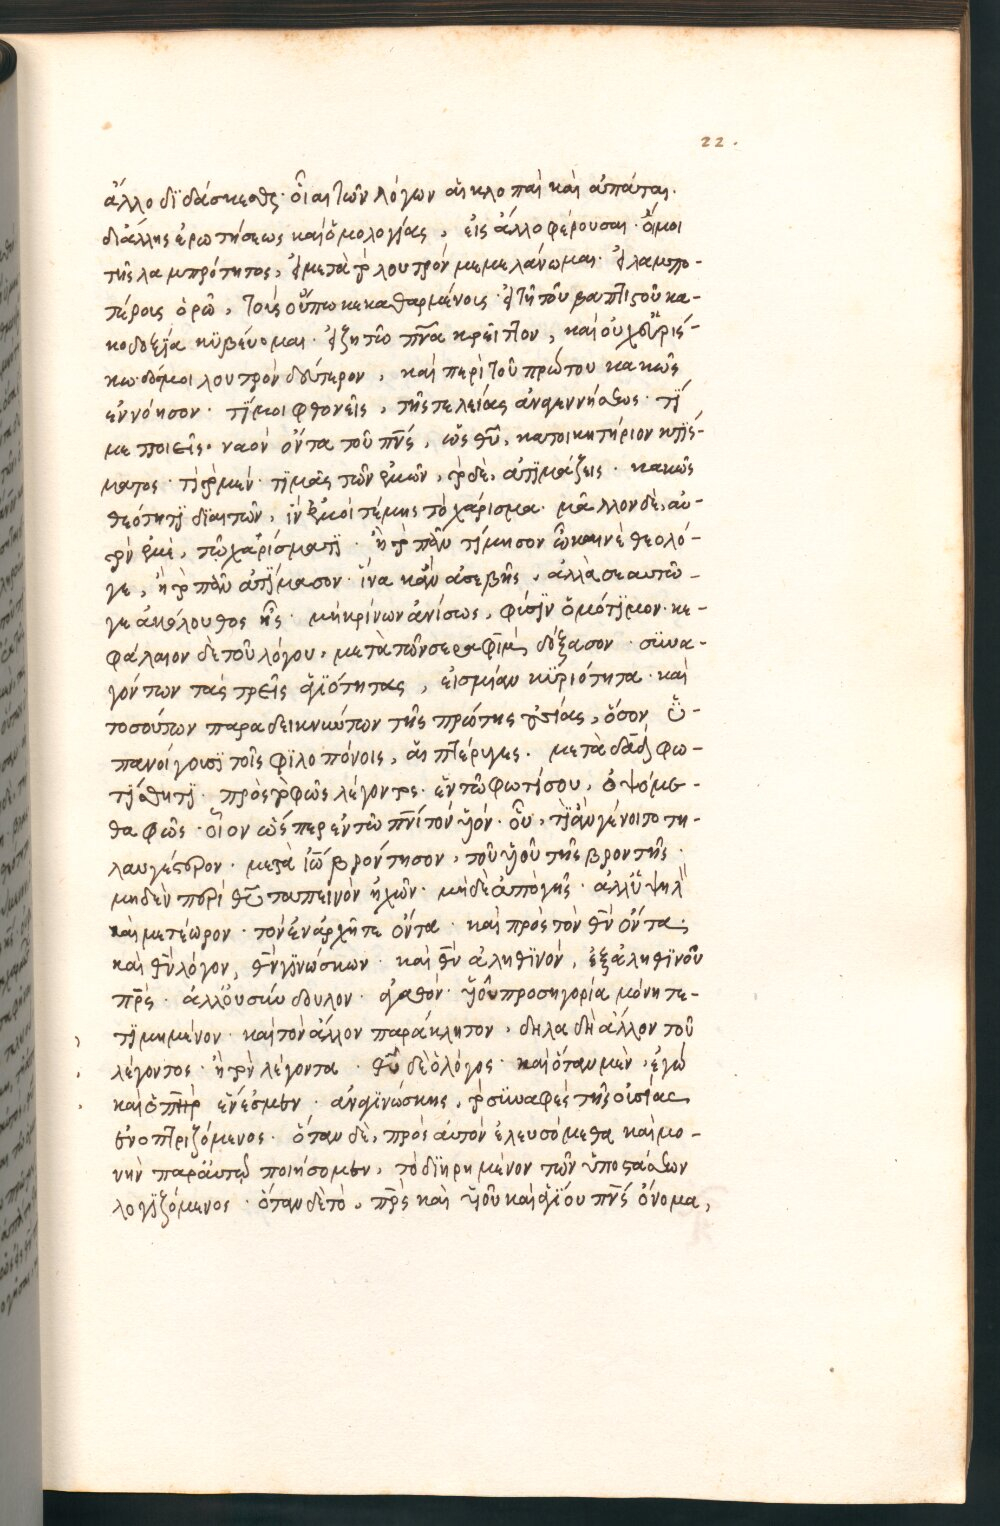 22.
ἄλλο διδάσκεσθε· οἷαι τῶν λόγων αἱ κλοπαὶ καὶ ἀπάται.
δι' ἄλλης ἐρωτήσεως καὶ ὁμολογίας, εἰς ἄλλο φέρουσαι· οἴμοι
τῆς λαμπρότητος, εἰ μετὰ τὸ λουτρὸν μεμελάνωμαι· εἰ λαμπρο-
τέροις ὁρῶ, τοὺς οὔπω κεκαθαρμένους· εἰ τῇ τοῦ βαπτιστοῦ κα-
κοδοξία κυβεύομαι· εἰ ζητῶ πνα κρεῖττον, καὶ οὐχ εὑρίσ-
κω· δός μοι λουτρὸν δεύτερον, καὶ περὶ τοῦ πρώτου κακῶς
ἐννόησον· τί μοι φθονεῖς, τῆς τελείας ἀναγεννήσεως· τί
με ποιεῖς· ναὸν ὄντα τοῦ πνς, ὡς θυ, κατοικητήριον κτίσ-
ματος· τί τὸ μὲν τιμᾶς τῶν ἐμῶν, τὸ δὲ, ἀτιμάζεις· κακῶς
θεότητι διαιτῶν, ἵν' ἐμοὶ τέμης τὸ χάρισμα· μᾶλλον δὲ, αὐ-
τὸν ἐμὲ, τῷ χαρίσματι· ἢ τὸ πᾶν τίμησον ὦ καινὲ θεολό-
γε, ἢ τὸ πᾶν ἀτίμασον· ἵνα κἂν ἀσεβῆς, ἀλλὰ σεαυτῶ
γε ἀκόλουθος ῇς· μὴ κρίνων ἀνίσως, φύσιν ὁμότιμον· κε-
φάλαιον δὲ τοῦ λόγου, μετὰ τῶν σεραφὶμ, δόξασον· συνα-
γόντων τὰς τρεῖς ἁγιότητας, εἰς μίαν κυριότητα· καὶ
τοσοῦτον παραδεικνύντων τῆς πρώτης οὐσίας, ὅσον ὑ-
πανοίγουσι τοῖς φιλοπόνοις, αἱ πτέρυγες. μετὰ δαδ φω-
τίσθητι· πρὸς τὸ φῶς λέγοντος· ἐν τῶ φωτί σου, ὀψόμε-
θα φῶς· οἷον ὥσπερ ἐν τῶ πνι τὸν υἱόν· οὗ, τί ἂν γένοιτο τη-
λαυγέστερον· μετὰ ἰω βρόντησον, τοῦ υἱοῦ τῆς βροντῆς·
μηδὲν περὶ θυ ταπεινὸν ἠχῶν· μηδὲ ἀπὸ γῆς· ἀλλ' ὑψηλὸ
καὶ μετέωρον· τὸν ἐν ἀρχῇ τε ὄντα· καὶ πρὸς τὸν θν ὄντα·
καὶ θν λόγον, θν γινώσκων· καὶ θν ἀληθινόν, ἐξ ἀληθινοῦ
πρς· ἀλλ' οὐ σύνδουλον ἀγαθόν· υἱοῦ προσηγορία μόνη τε-
τιμημένον· καὶ τὸν ἄλλον παράκλητον, δηλαδὴ ἄλλον τοῦ
λέγοντος· ἢ τὸν λέγοντα· θυ δὲ ὁ λόγος· καὶ ὅταν μὲν, ἐγὼ
καὶ ὁ πηρ ἕν ἐσμεν· ἀναγινώσκης, τὸ συναφὲς τῆς οὐσίας
ἐνοπτριζόμενος· ὅταν δὲ, πρὸς αὐτὸν ἐλευσόμεθα καὶ μο-
νὴν παρ' αὐτῷ ποιήσομεν, τὸ διηρημένον τῶν ὑποστάσεων
λογιζόμενος· ὅταν δὲ τὸ, πρς καὶ υἱοῦ καὶ ἁγίου πνς ὄνομα,